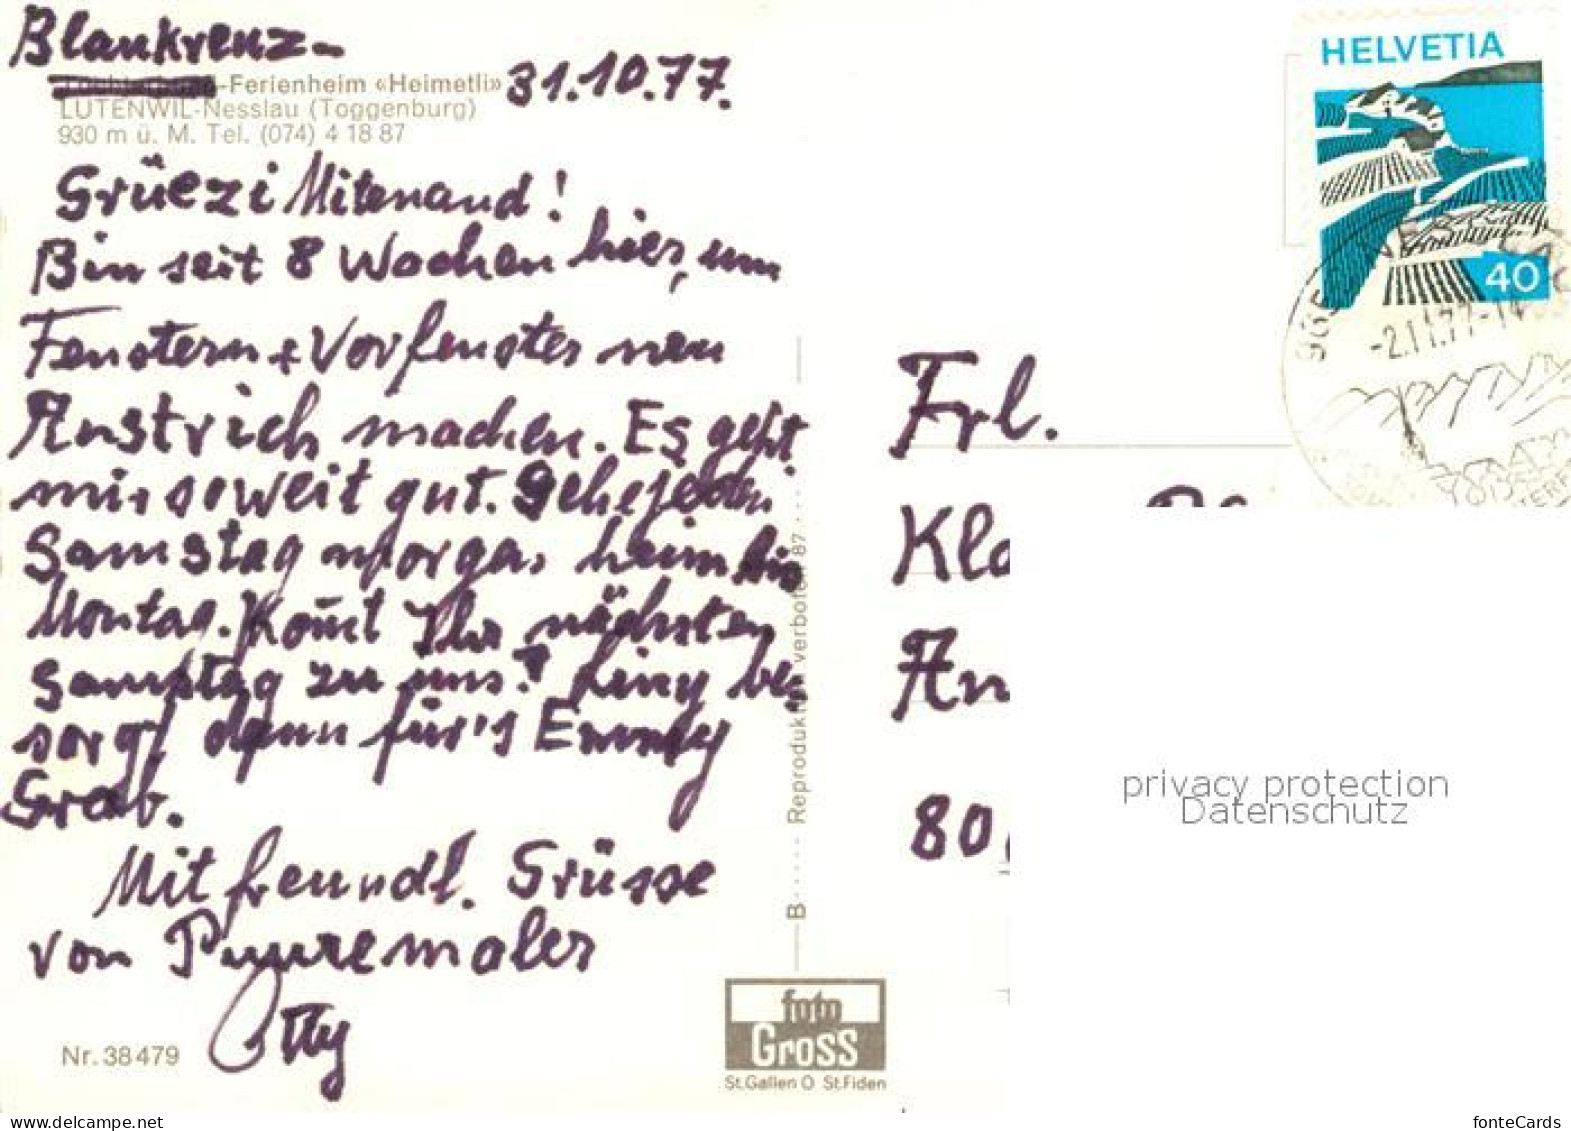 Blaukreuz-
-Ferienheim «Heimetli»
31.10.77.
LUTENWIL-Nesslau (Toggenburg)
930 m ü. M. Tel. (074) 4 18 87
Grüezi Mitenand!
Bin seit 8 Wochen hier, um
Fenstern + Vorfenster neu
Anstrich machen. Es geht
mir soweit gut. Gehe jeden
Samstag morgen heim bis
Montag. Kom̄t Ihr nächsten
Samstag zu uns? Liny be-
sorgt dann für's Emmy
Grab.
Mit freundl. Grüsse
von Puuremaler
Otty
Nr. 38479
B ..... Reproduktion verboten 87 ....
foto
Gross
St.Gallen O St.Fiden
HELVETIA
40
-2.11.77-14
Frl.
Kla
An
80
privacy protection
Datenschutz
www.delcampe.net
fonteCards